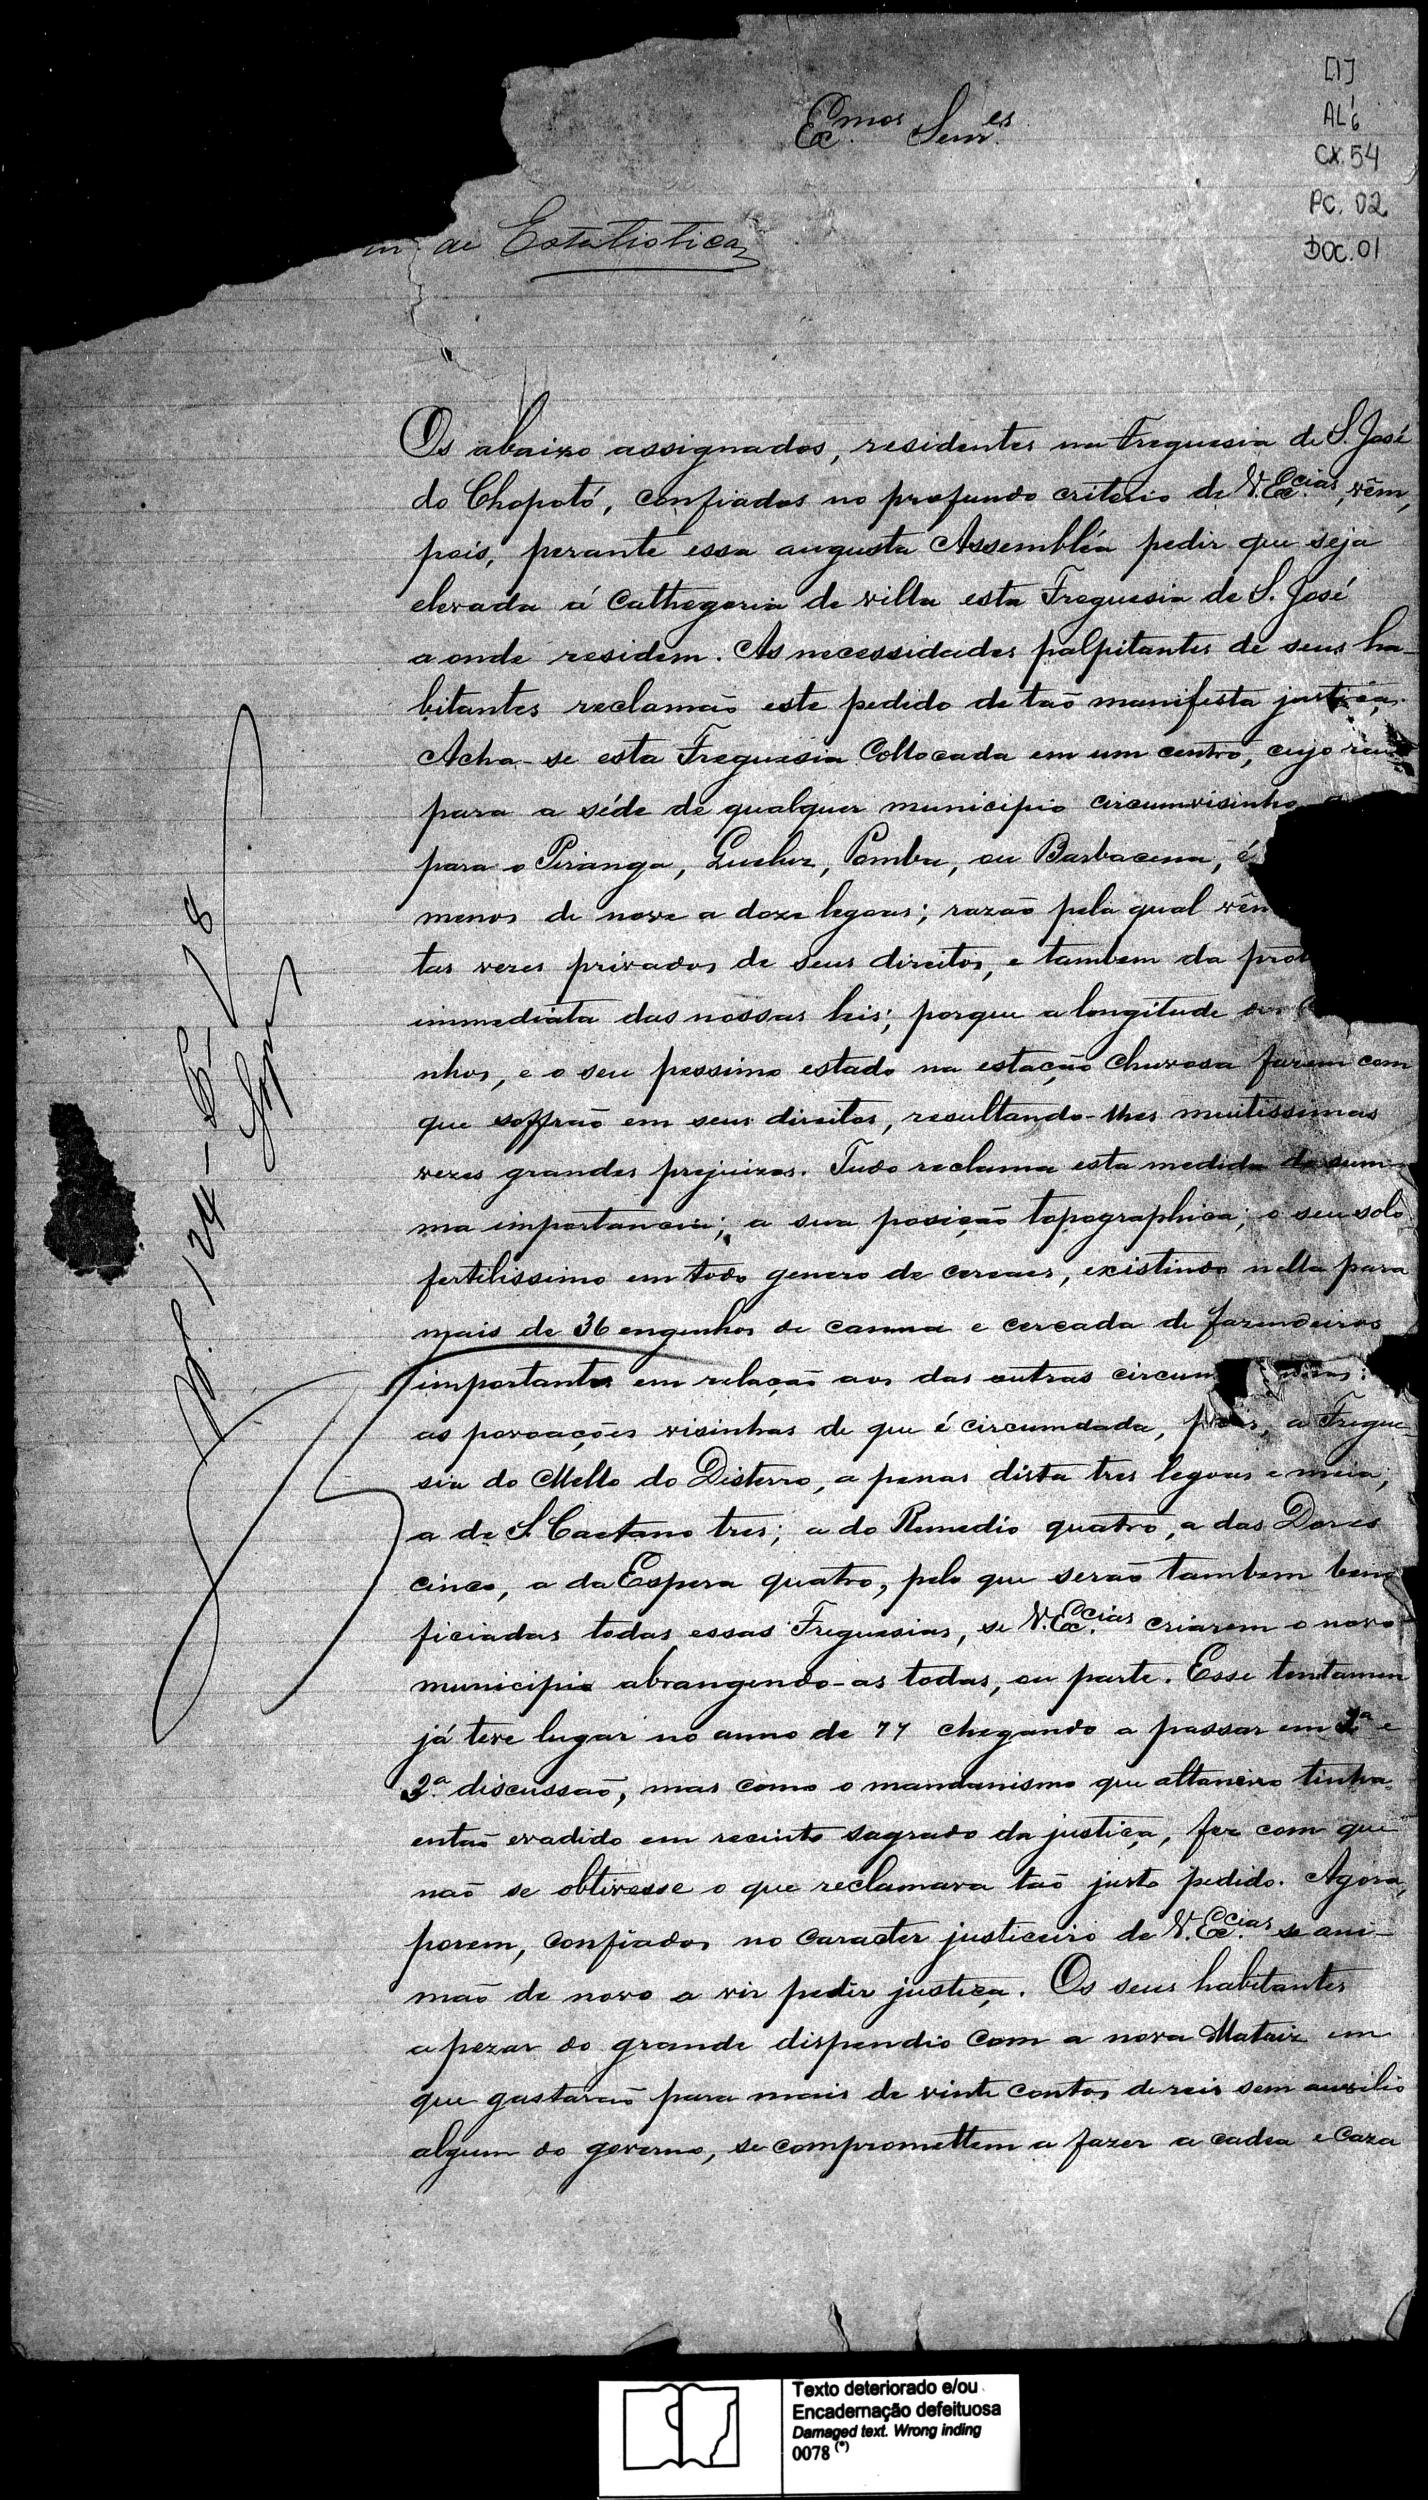 [1]
AL 6
CX. 54
PC. 02
DOC. 01
Ex.mos Senr.es
de Estatistica
Os abaixo assignados, residentes na Freguesia de S. José
do Chopotó, confiados no profundo criterio de V. Ex.cias, vêm,
pois, perante essa augusta Assembléa pedir que seja
elevada á Cathegoria de villa esta Freguesia de S. José
aonde residem. As necessidades palpitantes de seus ha-
bitantes reclamaõ este pedido de taõ manifesta justiça.
Acha-se esta Freguesia Collocada em um centro, cujo
para a séde de qualquer municipio circumvisinho
para o Piranga, Queluz, Pomba, ou Barbacena, é
menos de nove a doze legoas; razaõ pela qual
tas vezes privados de seus direitos, e tambem da
immediata das nossas leis; porque a longitude
nhos, e o seu pessimo estado na estaçaõ chuvosa fazem com
que soffraõ em seus direitos, resultando-lhes muitissimas
vezes grandes prejuizos. Tudo reclama esta medida de sum-
ma importancia; a sua posiçaõ topographica; o seu solo
fertilissimo em todo genero de cereaes, existindo nella para
mais de 36 engenhos de canna e cercada de fazendeiros
importantes em relaçaõ aos das outras circum
as povoações visinhas de que é circumdada, pois, a Fregue-
sia do Mello do Disterro, apenas dista tres legoas e meia,
a de S. Caetano tres; a do Remedio quatro, a das Dores
cinco, a da Espera quatro, pelo que seraõ tambem bene
ficiadas todas essas Freguesias, se V. Ex.cias criarem o novo
municipio abrangendo-as todas, ou parte. Esse tentamen
já teve lugar no anno de 77 chegando a passar em 1ª e
2ª discussaõ, mas como o mandonismo que altaneiro tinha
entaõ evadido em recinto sagrado da justiça, fez com que
naõ se obtivesse o que reclamava taõ justo pedido. Agora,
porem, confiados no caracter justiceiro de V. Ex.cias se ani-
maõ de novo a vir pedir justiça. Os seus habitantes
apezar do grande dispendio com a nova Matriz em
que gastaraõ para mais de vinte contos de reis sem auxilio
algum do governo, se compromettem a fazer a cadea e caza
Texto deteriorado e/ou
Encadernação defeituosa
Damaged text. Wrong inding
0078 (*)